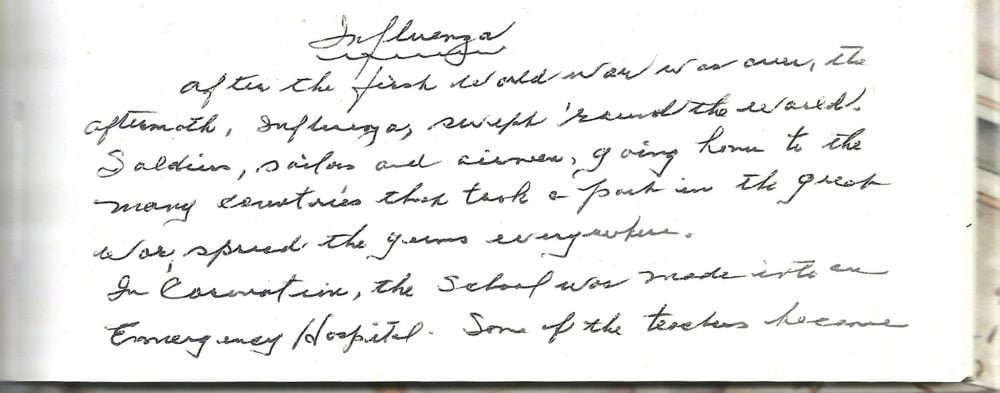 Influenza
After the first World war was over, the
aftermath, Influenza, swept 'round the world.
Soldiers, sailors and airmen, going home to the
many countries that took a part in the great
War, spread the germs everywhere.
In Coronation, the School was made into an
Emergency Hospital. Some of the teachers became